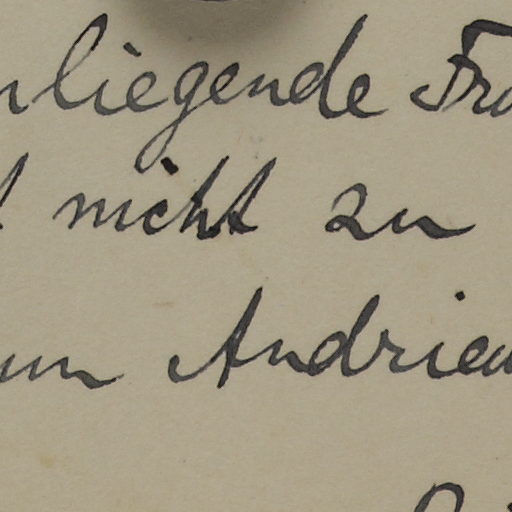 nliegende Fra
t nicht zu
um Andrieu